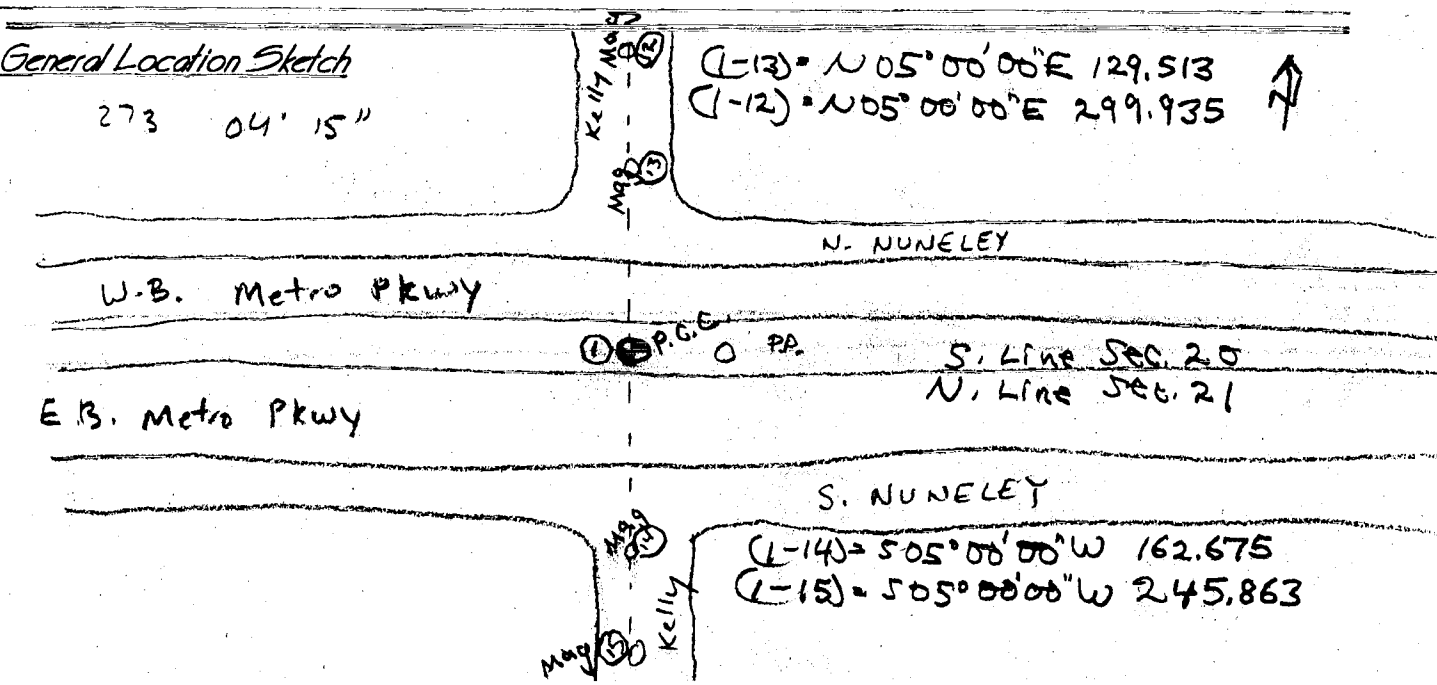 General Location Sketch
273 04' 15"
Kelly
Mag
12
(1-13)= N 05° 00' 00" E 129.513
(1-12)= N 05° 00' 00" E 299.935
N
Mag
13
N. NUNELEY
W.B. Metro Pkwy
1
P.P.
S. Line Sec. 20
N. Line Sec. 21
E.B. Metro Pkwy
S. NUNELEY
Mag
14
(1-14)= S 05° 00' 00" W 162.675
(1-15)= S 05° 00' 00" W 245.863
Kelly
Mag
15